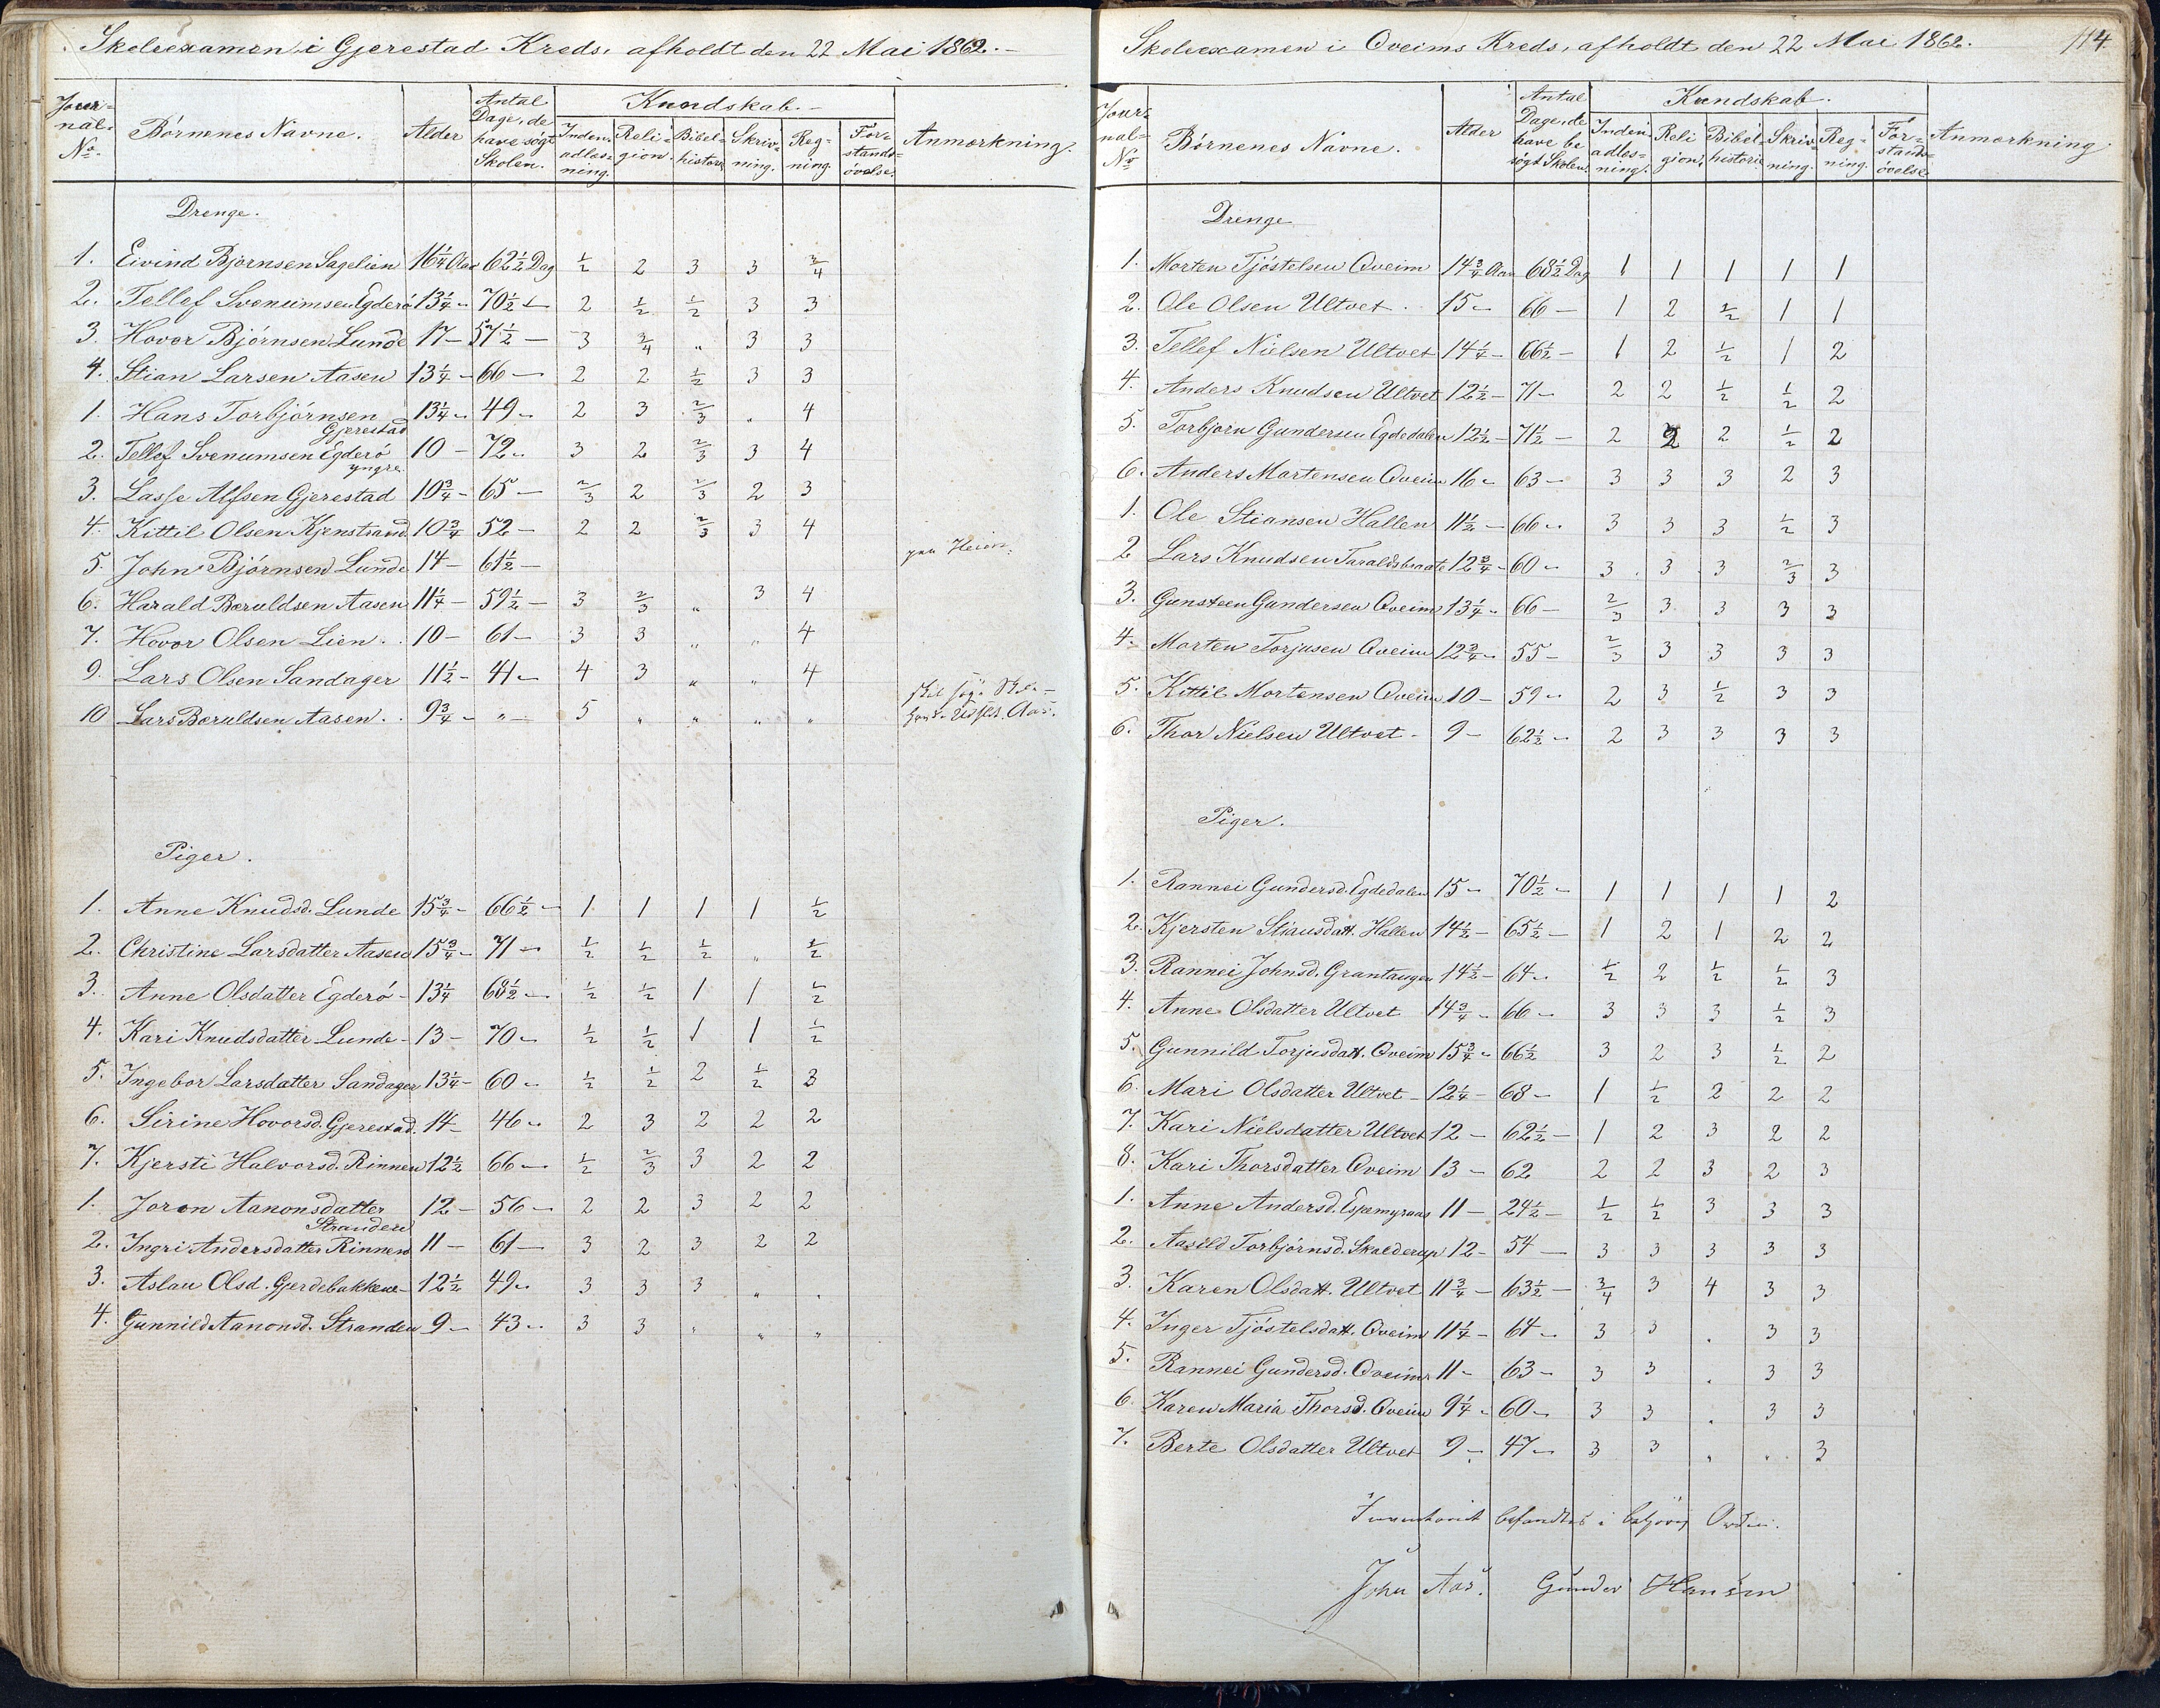 Skoleexamen i Gjerestad Kreds, afholdt den 22 Mai 1862.
Journal No. | Børnenes Navne. | Alder | Antal Dage, de have søgt Skolen. | Kundskab. | Anmærkning.
Indenadlæsning. | Religion. | Bibelhistorie | Skrivning. | Regning. | Forstandsøvelse.
Drenge.
1. Eivind Bjørnsen Sagelien 16 1/4 Aar 62 1/2 Dag 1/2 2 3 3 3/4
2. Tellef Svenumsen Egderö 13 1/4 - 70 1/2 - 2 1/2 1/2 3 3
3. Hovor Bjørnsen Lunde 17 - 57 1/2 - 3 3/4 " 3 3
4. Stian Larsen Aasen 13 1/4 - 66 - 2 2 1/2 3 3
1. Hans Torbjørnsen Gjerestad 13 1/4 - 49 - 2 3 2/3 " 4
2. Tellef Svenumsen Egderö yngre 10 - 72 - 3 2 2/3 3 4
3. Lasse Alfsen Gjerestad 10 3/4 - 65 - 2/3 2 2/3 2 3
4. Kittil Olsen Kjenstrand 10 3/4 52 - 2 2 2/3 3 4
5. John Bjørnsen Lunde 14 - 61 1/2 -
6. Harald Bæruldsen Aasen 11 1/4 - 59 1/2 - 3 2/3 " 3 4
7. Hovor Olsen Lien. 10 - 61 - 3 3 " " 4
9. Lars Olsen Sandager 11 1/2 - 41 - 4 3 " " 4
10 Lars Bæruldsen Aasen. 9 3/4 - " - 5 " " " "
Piger.
1. Anne Knudsd. Lunde 15 3/4 - 66 1/2 - 1 1 1 1 1/2
2. Christine Larsdatter Aasen 15 3/4 - 71 - 1/2 1/2 1/2 " 1/2
3. Anne Olsdatter Egderö - 13 1/4 68 1/2 - 1/2 1/2 1 1 1/2
4. Kari Knudsdatter Lunde - 13 - 70 - 1/2 1/2 1 1 1/2
5. Ingebor Larsdatter Sandager 13 1/4 - 60 - 1/2 1/2 2 1/2 3
6. Sirine Hovorsd. Gjerestad. 14 - 46 - 2 3 2 2 2
7. Kjersti Halvorsd. Rinnen 12 1/2 66 - 1/2 2/3 3 2 2
1. Joron Aanonsdatter Stranden 12 - 56 - 2 2 3 2 2
2. Ingri Andersdatter Rinnen 11 - 61 - 3 2 3 2 2
3. Aslau Olsd. Gjerdebakkene - 12 1/2 49 - 3 3 3 " "
4. Gunnild Aanonsd. Stranden 9 - 43 - 3 3 " " "
Skoleexamen i Oveims Kreds, afholdt den 22 Mai 1862. 114
Journal No | Børnenes Navne. | Alder | Antal Dage, de have besøgt Skolen. | Kundskab. | Anmærkning.
Indenadlæsning. | Religion. | Bibelhistorie | Skrivning. | Regning. | Forstandsøvelse
Drenge
1. Morten Tjöstelsen Oveim 14 3/4 Aar 68 1/2 Dag 1 1 1 1 1
2. Ole Olsen Ultvet. 15 - 66 - 1 2 1/2 1 1
3. Tellef Nielsen Ultvet 14 1/4 - 66 1/2 - 1 2 1/2 1 2
4. Anders Knudsen Ultvet 12 1/2 - 71 - 2 2 1/2 1/2 2
5. Torbjørn Gundersen Egdedalen 12 1/2 - 71 1/2 - 2 2 2 1/2 2
6. Anders Mortensen Oveim 16 - 63 - 3 3 3 2 3
1. Ole Stiansen Hallen 11 1/2 - 66 - 3 3 3 1/2 3
2 Lars Knudsen Taraldsbraate 12 3/4 - 60 - 3 3 3 2/3 3
3. Gunsteen Gundersen Oveim 13 1/4 - 66 - 2/3 3 3 3 3
4. Morten Torjusen Oveim 12 3/4 - 55 - 2/3 3 3 3 3
5. Kittil Mortensen Oveim 10 - 59 - 2 3 1/2 3 3
6. Thor Nielsen Ultvet - 9 - 62 1/2 - 2 3 3 3 3
Piger.
1. Rannei Gundersd. Egdedalen 15 - 70 1/2 - 1 1 1 1 2
2. Kjersten Stiansdatt. Hallen 14 1/2 - 65 1/2 - 1 2 1 2 2
3. Rannei Johnsd. Grantangen 14 1/2 - 64 - 1/2 2 1/2 1/2 3
4. Anne Olsdatter Ultvet 14 3/4 - 66 - 3 3 3 1/2 3
5. Gunnild Torjusdatt. Oveim 15 3/4 - 66 1/2 3 2 3 1/2 2
6. Mari Olsdatter Ultvet - 12 1/4 - 68 - 1 1/2 2 2 2
7. Kari Nielsdatter Ultvet 12 - 62 1/2 - 1 2 3 2 2
8. Kari Thorsdatter Oveim 13 - 62 2 2 3 2 3
1. Anne Andersd. Espemyraas 11 - 24 1/2 - 1/2 1/2 3 3 3
2. Aasild Torbjörnsd. Skalderup 12 - 54 - 3 3 3 3 3
3. Karen Olsdatt. Ultvet 11 3/4 - 63 1/2 - 3/4 3 4 3 3
4. Inger Tjöstelsdatt. Oveim 11 1/4 - 64 - 3 3 " 3 3
5. Rannei Gundersd. Oveim 11 - 63 - 3 3 " 3 3
6 Karen Maria Thorsd. Oveim 9 1/4 - 60 - 3 3 " 3 3
7. Berte Olsdatter Ultvet 9 - 47 - 3 3 " " 3
Inventariet befandtes i behørig Orden.
John Aas. Gunder Hansen